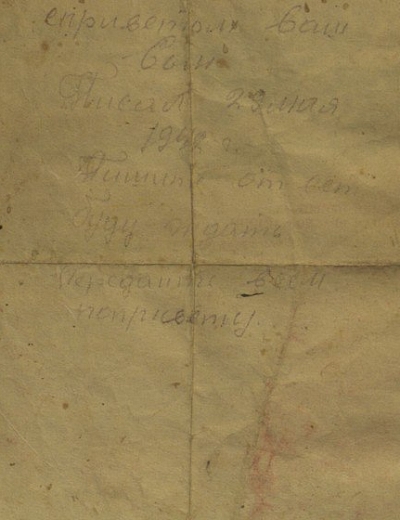 сприветом Ваш
Сын
Писал 23 мая
1942 г.
Пишите от вет
буду ждать
Передайте всем
попривету.